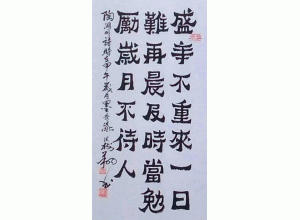 盛年不重來一日
難再晨及時當勉
勵歲月不待人
陶淵明詩